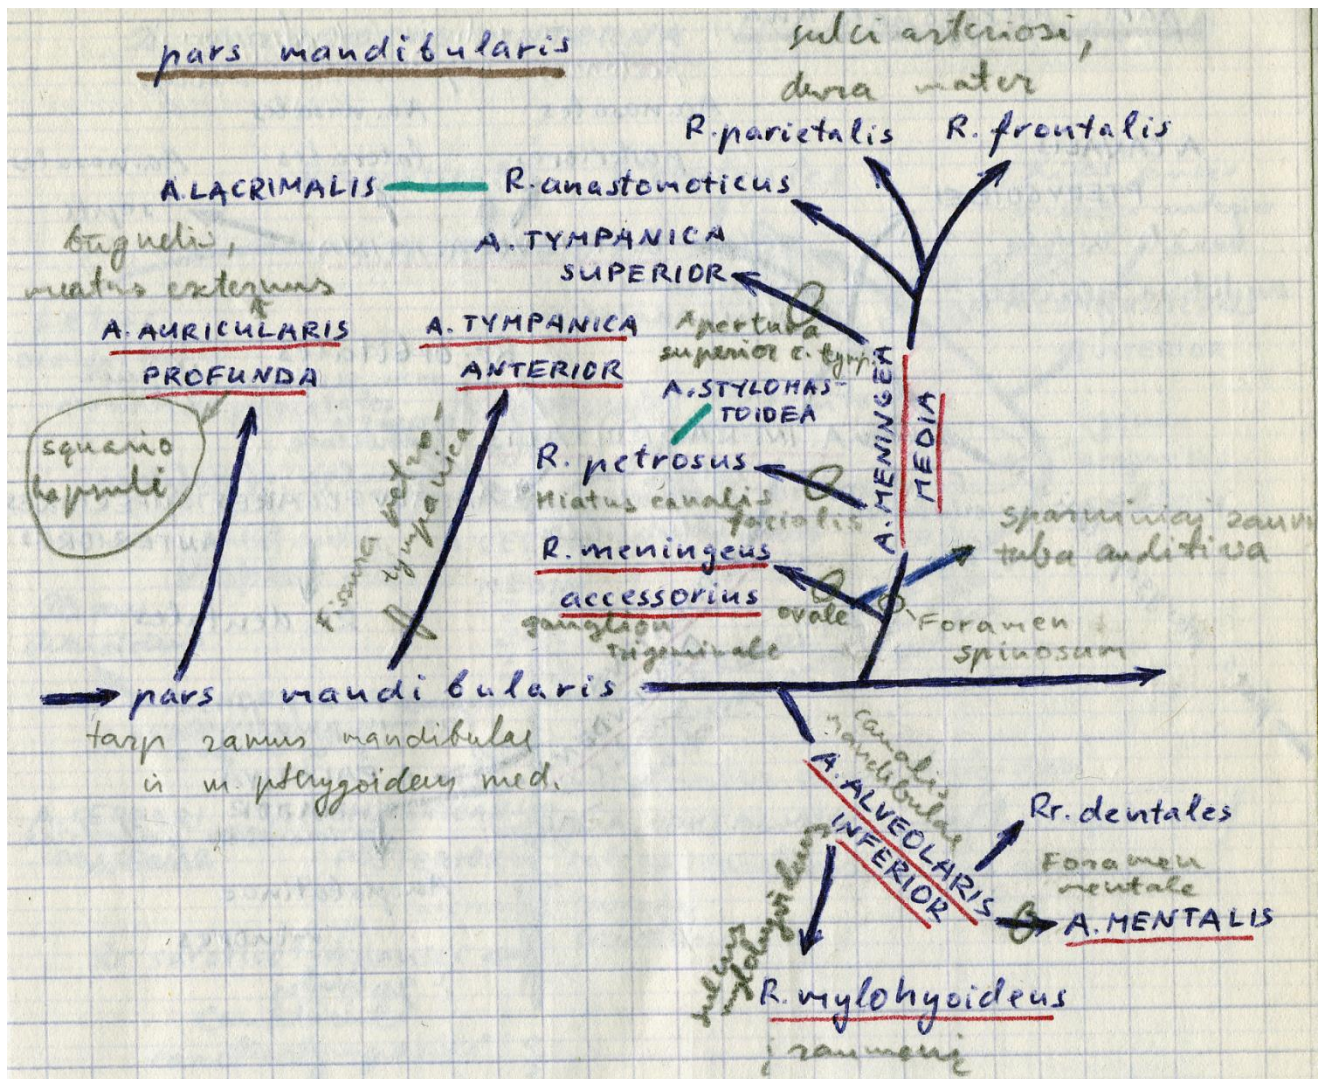 pars mandibularis
sulci arteriosi,
dura mater
R. parietalis
R. frontalis
A. LACRIMALIS
R. anastomoticus
būgnelis,
meatus externus
A. TYMPANICA
SUPERIOR
A. AURICULARIS
PROFUNDA
A. TYMPANICA
ANTERIOR
Apertura
superior c. tymp.
A. STYLOMAS-
TOIDEA
A. MENINGEA
MEDIA
sąnario
kapsulė
Fissura petro-
tympanica
R. petrosus
Hiatus canalis
facialis
R. meningeus
accessorius
ganglion
trigeminale
ovale
Foramen
spinosum
tuba auditiva
pars mandibularis
tarp ramus mandibulae
ir m. pterygoideus med.
canalis
mandibulae
A. ALVEOLARIS
INFERIOR
Rr. dentales
Foramen
mentale
A. MENTALIS
sulcus
mylohyoideus
R. mylohyoideus
į raumenį